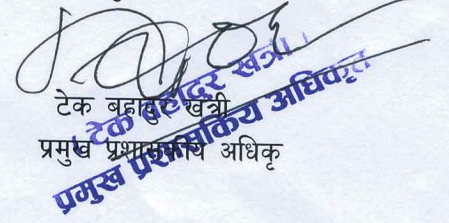 टेक बहादुर खत्री
प्रमुख प्रशासकीय अधिकृ
टेक बहादुर खत्री
प्रमुख प्रशासकिय अधिकृत